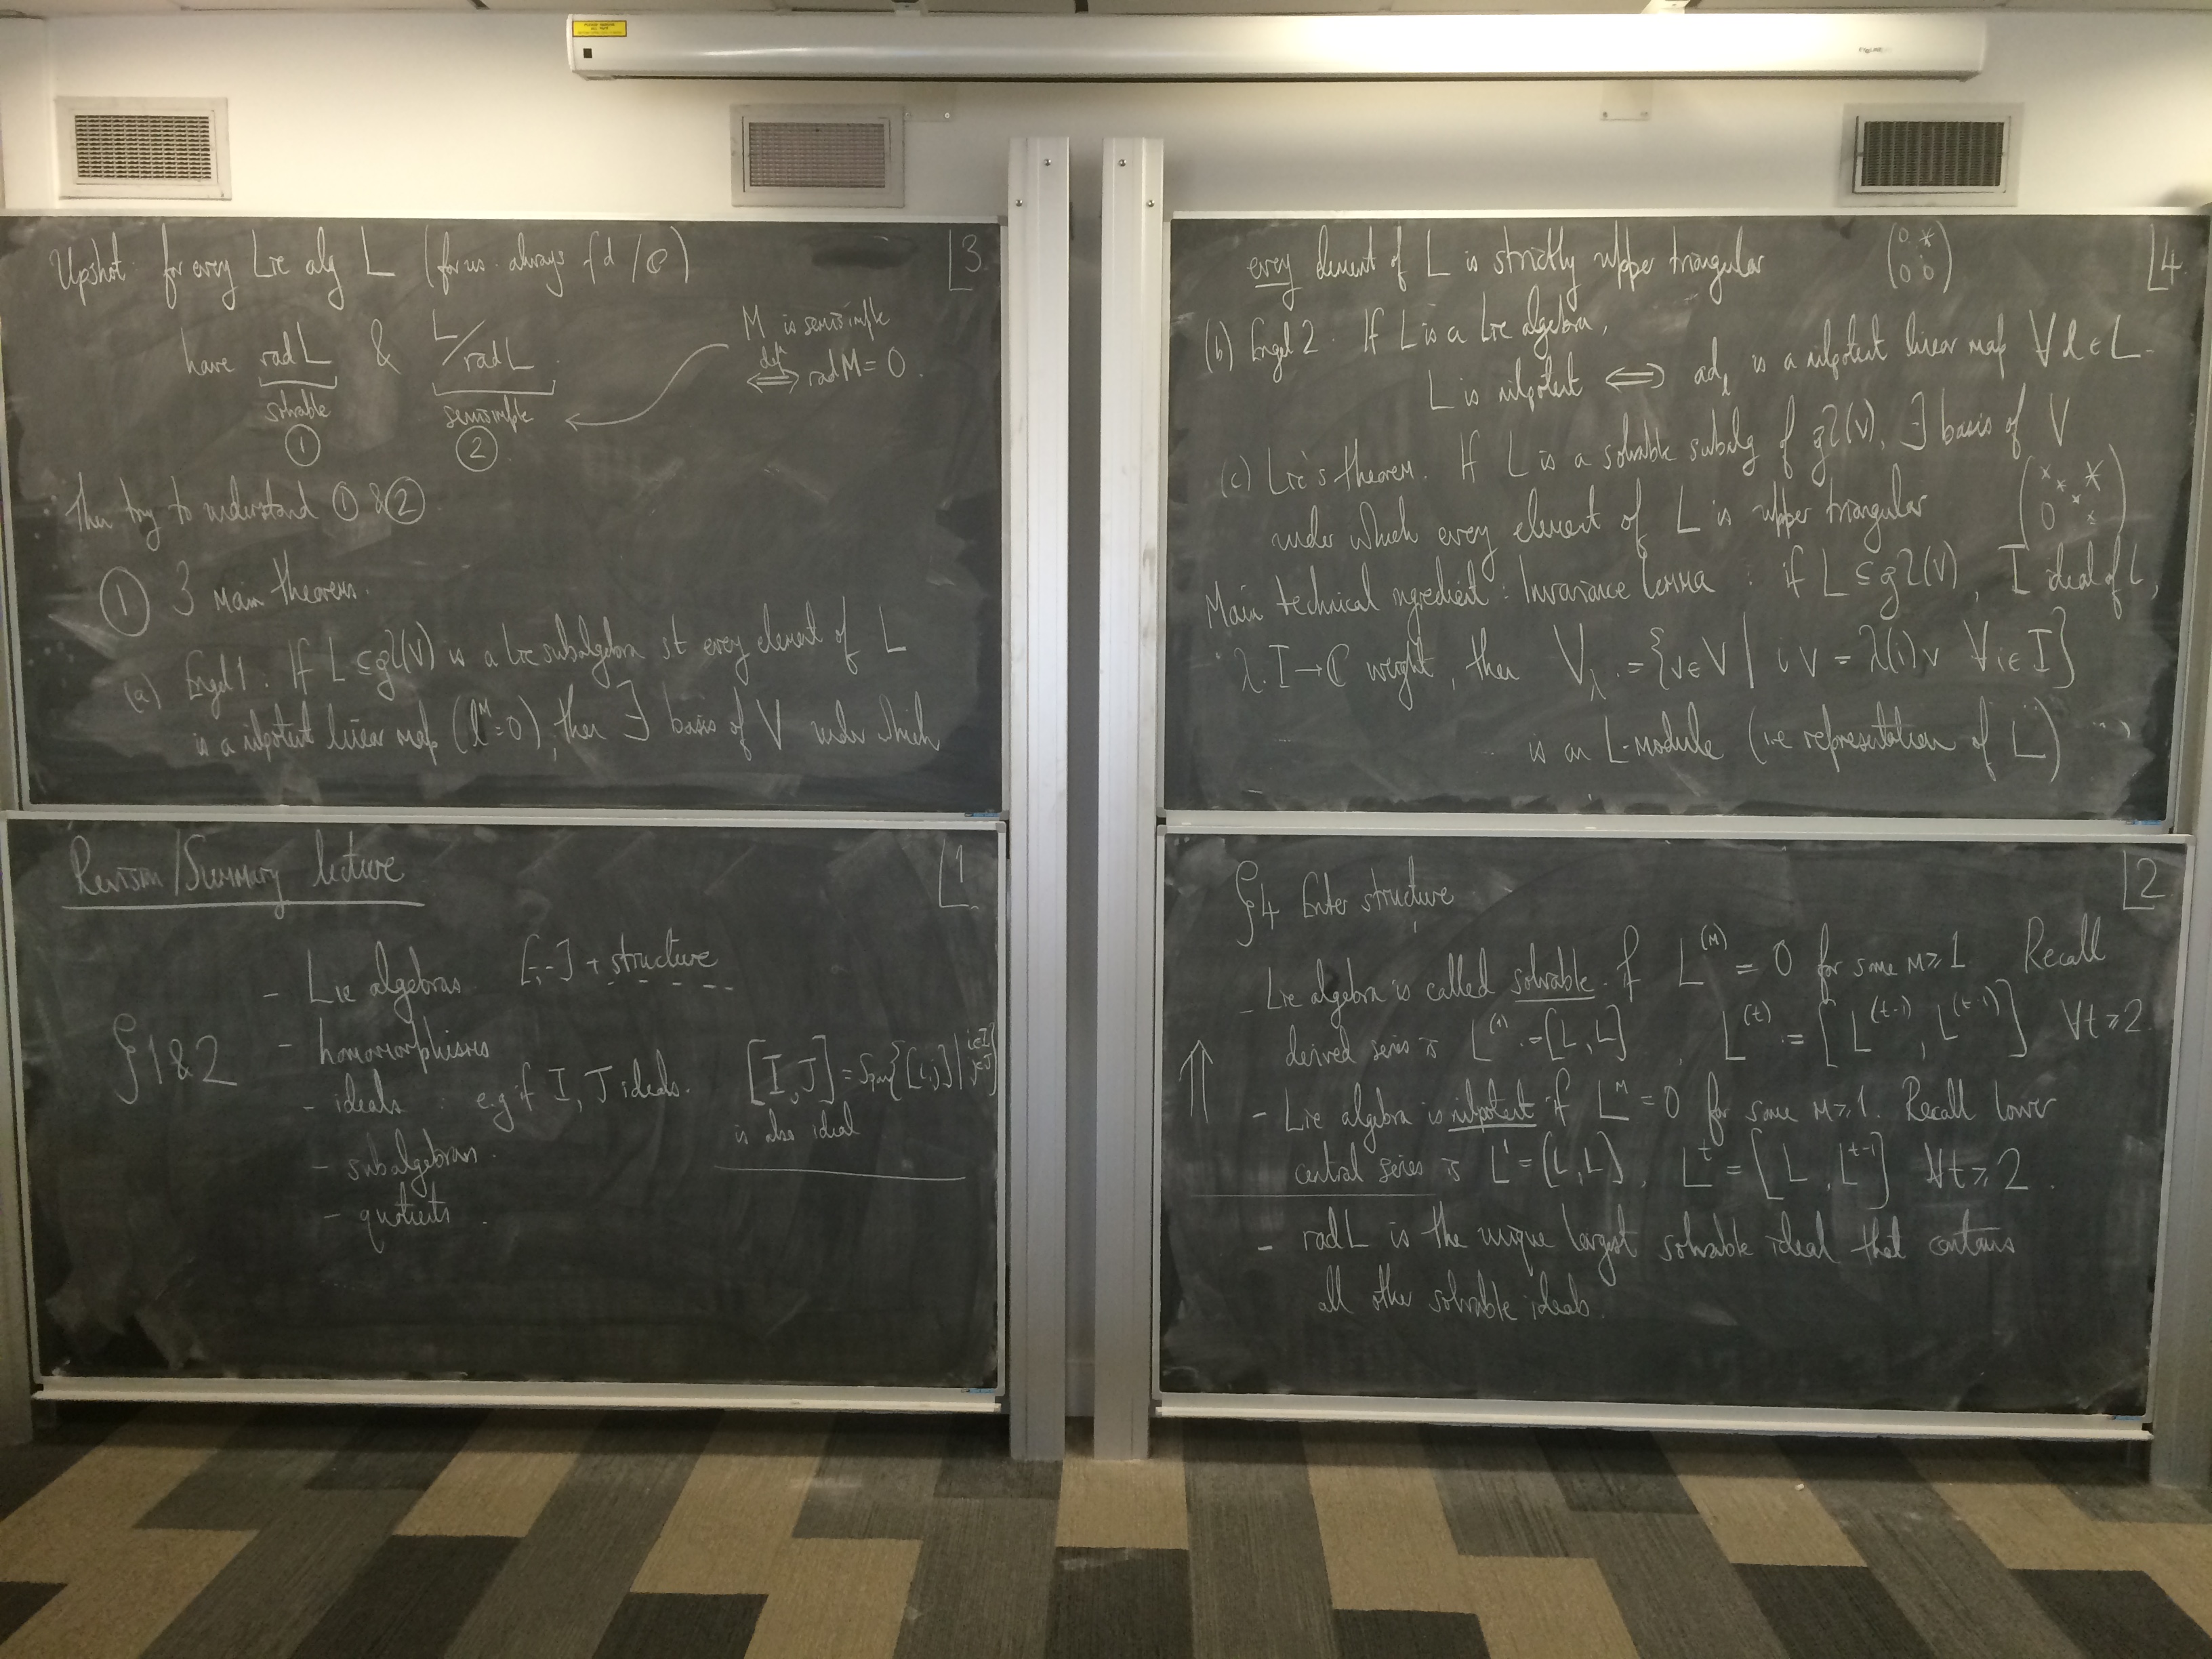 Revision/Summary lecture
L1
§1&2
- Lie algebras [-,-] + structure
- homomorphisms
- ideals : e.g if I, J ideals. [I,J] = Span{[i,j] | i∈I, j∈J}
is also ideal
- subalgebras.
- quotients.
§4 Enter structure
L2
- Lie algebra is called solvable if L^(m) = 0 for some m ≥ 1 Recall
derived series is L^(1) := [L,L] , L^(t) := [L^(t-1), L^(t-1)] ∀t ≥ 2
⇑
- Lie algebra is nilpotent if L^m = 0 for some m ≥ 1. Recall lower
central series is L^1 = [L,L], L^t = [L, L^(t-1)] ∀t ≥ 2.
- rad L is the unique largest solvable ideal that contains
all other solvable ideals.
Upshot: for every Lie alg L (for us: always fd / ℂ)
L3
have rad L & L/rad L
solvable semisimple
① ②
M is semisimple
defn
⟺ rad M = 0.
Then try to understand ① & ②
① 3 main theorems.
(a) Engel 1. If L ⊆ gl(V) is a Lie subalgebra st every element of L
is a nilpotent linear map (l^M = 0), then ∃ basis of V under which
every element of L is strictly upper triangular (0 * 0 0)
L4
(b) Engel 2. If L is a Lie algebra,
L is nilpotent ⟺ ad_l is a nilpotent linear map ∀ l ∈ L.
(c) Lie's theorem. If L is a solvable subalg of gl(V), ∃ basis of V
under which every element of L is upper triangular (* * 0 *)
Main technical ingredient : Invariance lemma : if L ⊆ gl(V), I ideal of L,
λ: I → ℂ weight, then V_λ := {v ∈ V | iv = λ(i)v ∀ i ∈ I}
is an L-module (i.e representation of L)